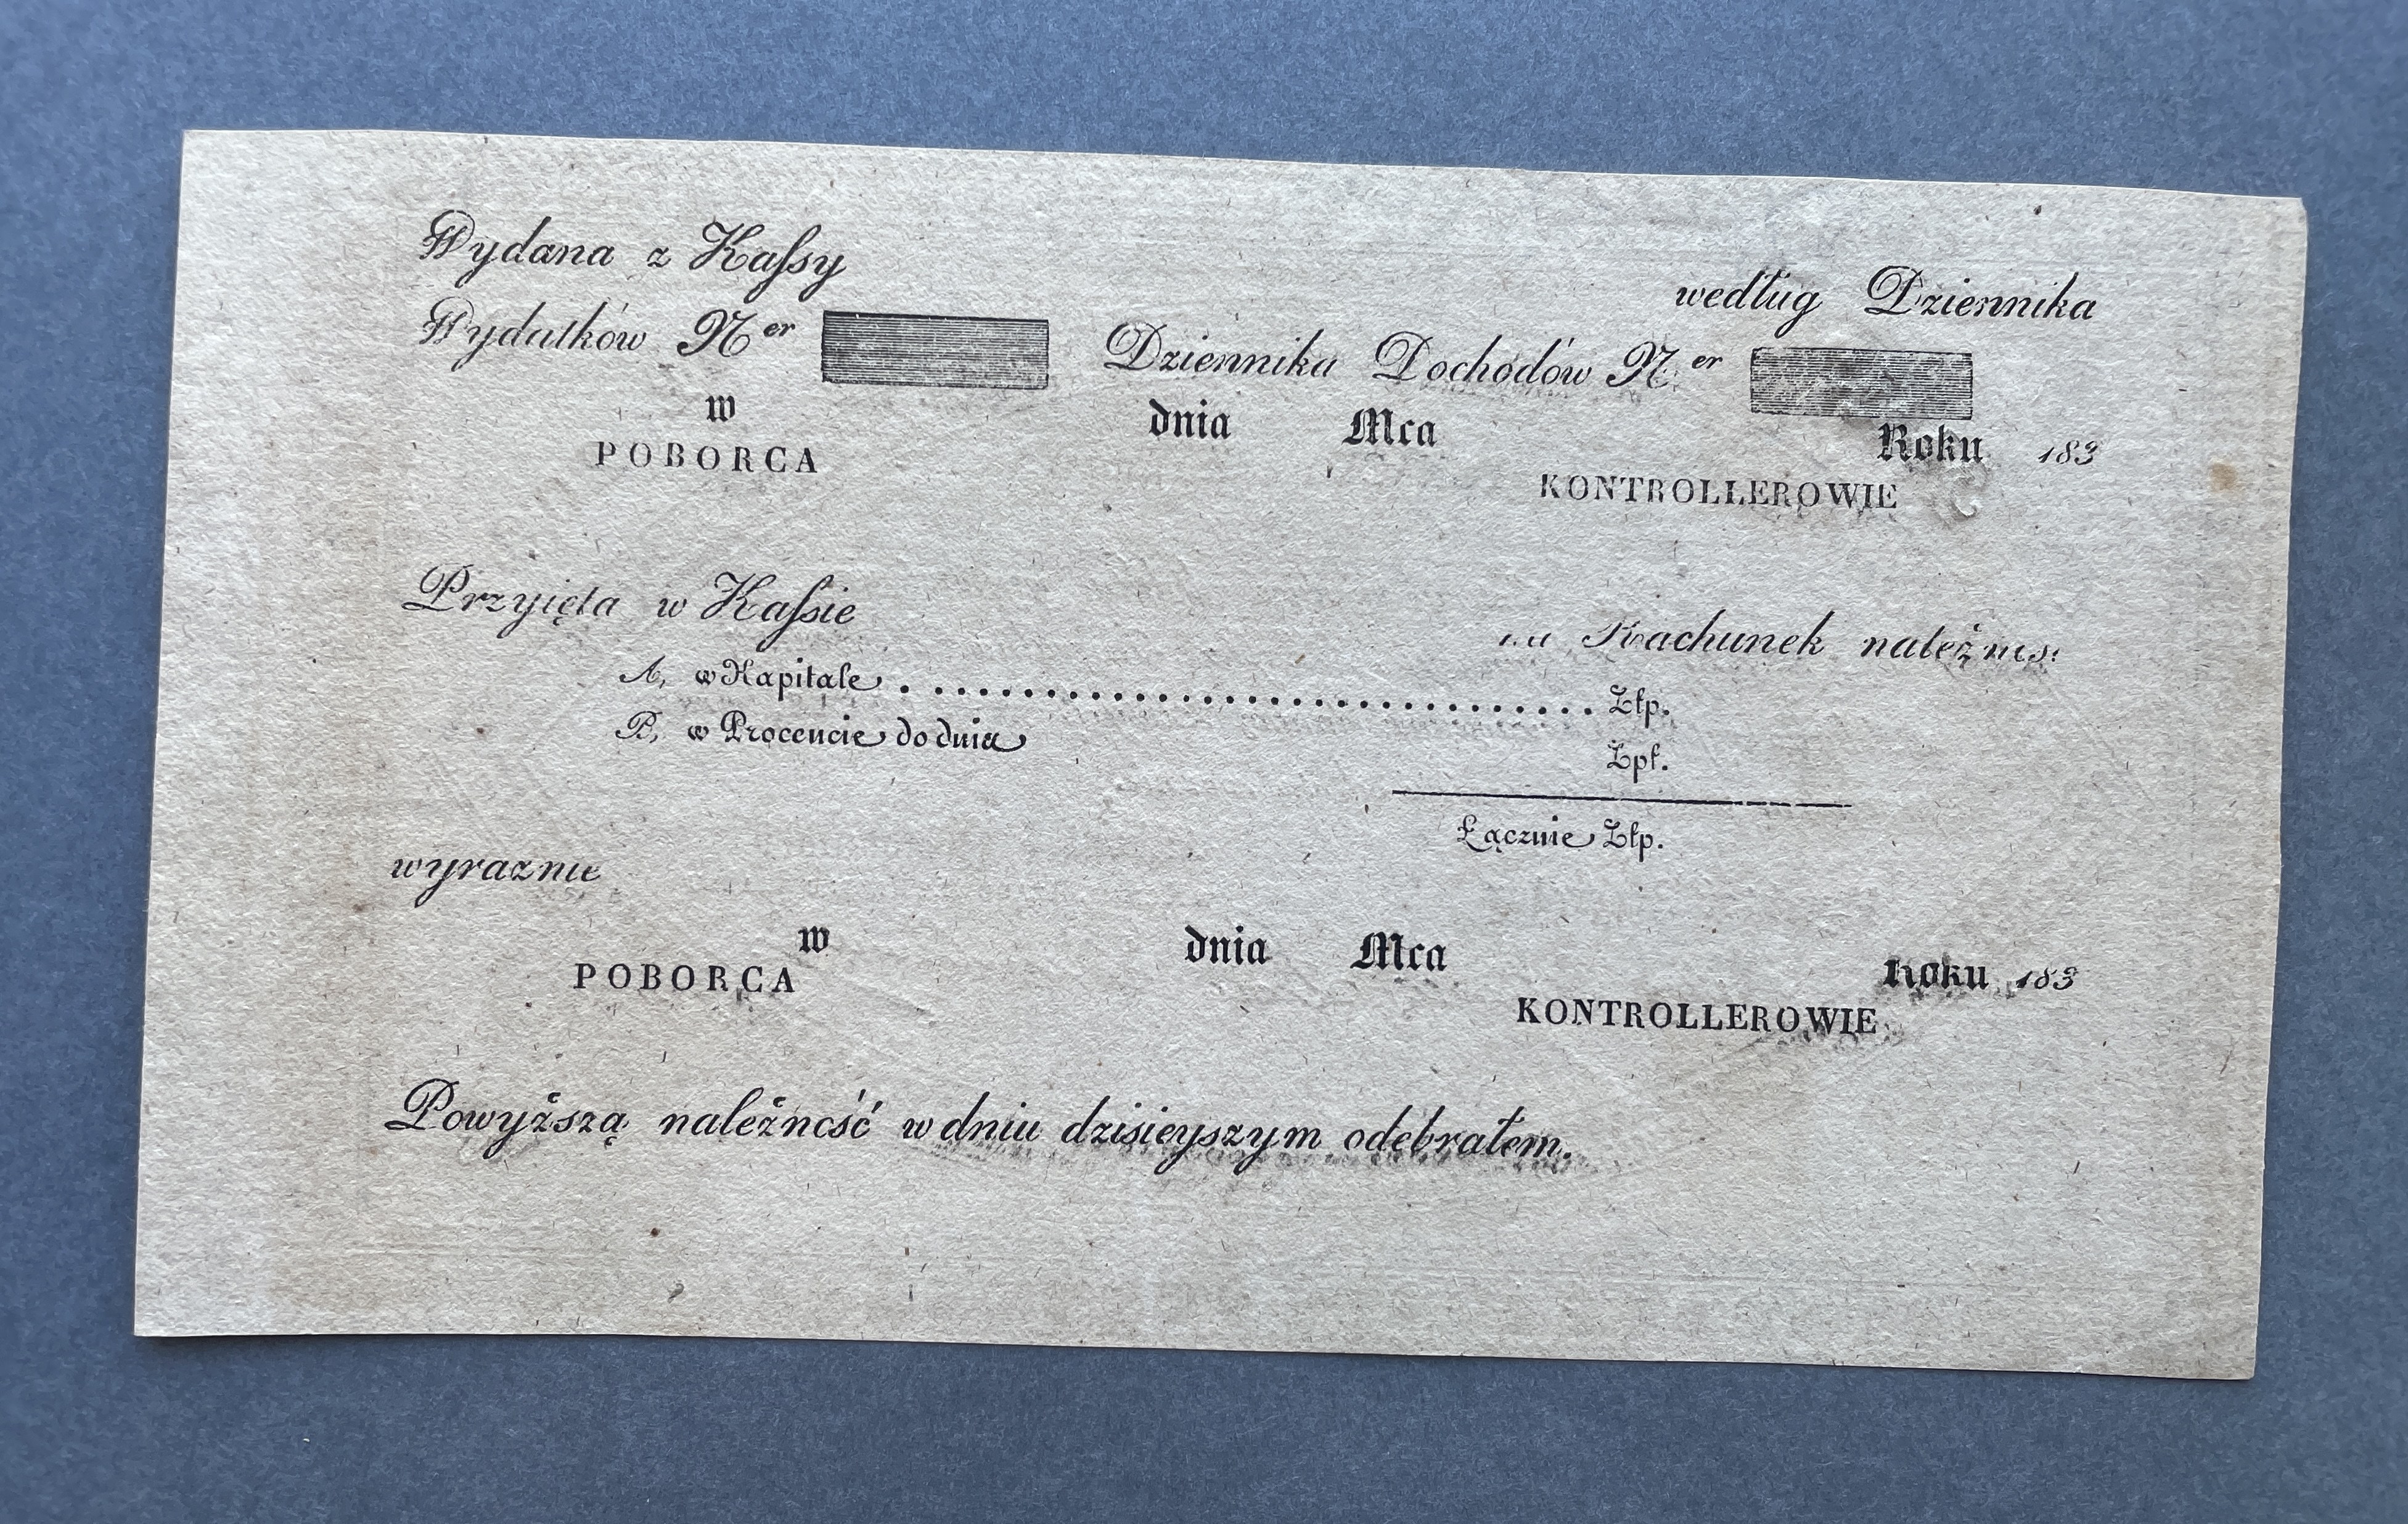 Wydana z Kaſsy według Dziennika
Wydatków Ner Dziennika Dochodów Ner
w dnia Mca Roku 183
POBORCA KONTROLLEROWIE
Przyięta w Kaſsie Rachunek
A, w Kapitale . ............................ Złp.
B, w Procencie do dnia Zpł.
Łącznie Złp.
wyraznie
w dnia Mca Roku 183
POBORCA KONTROLLEROWIE
Powyższą należność w dniu dzisieyszym odebrałem.